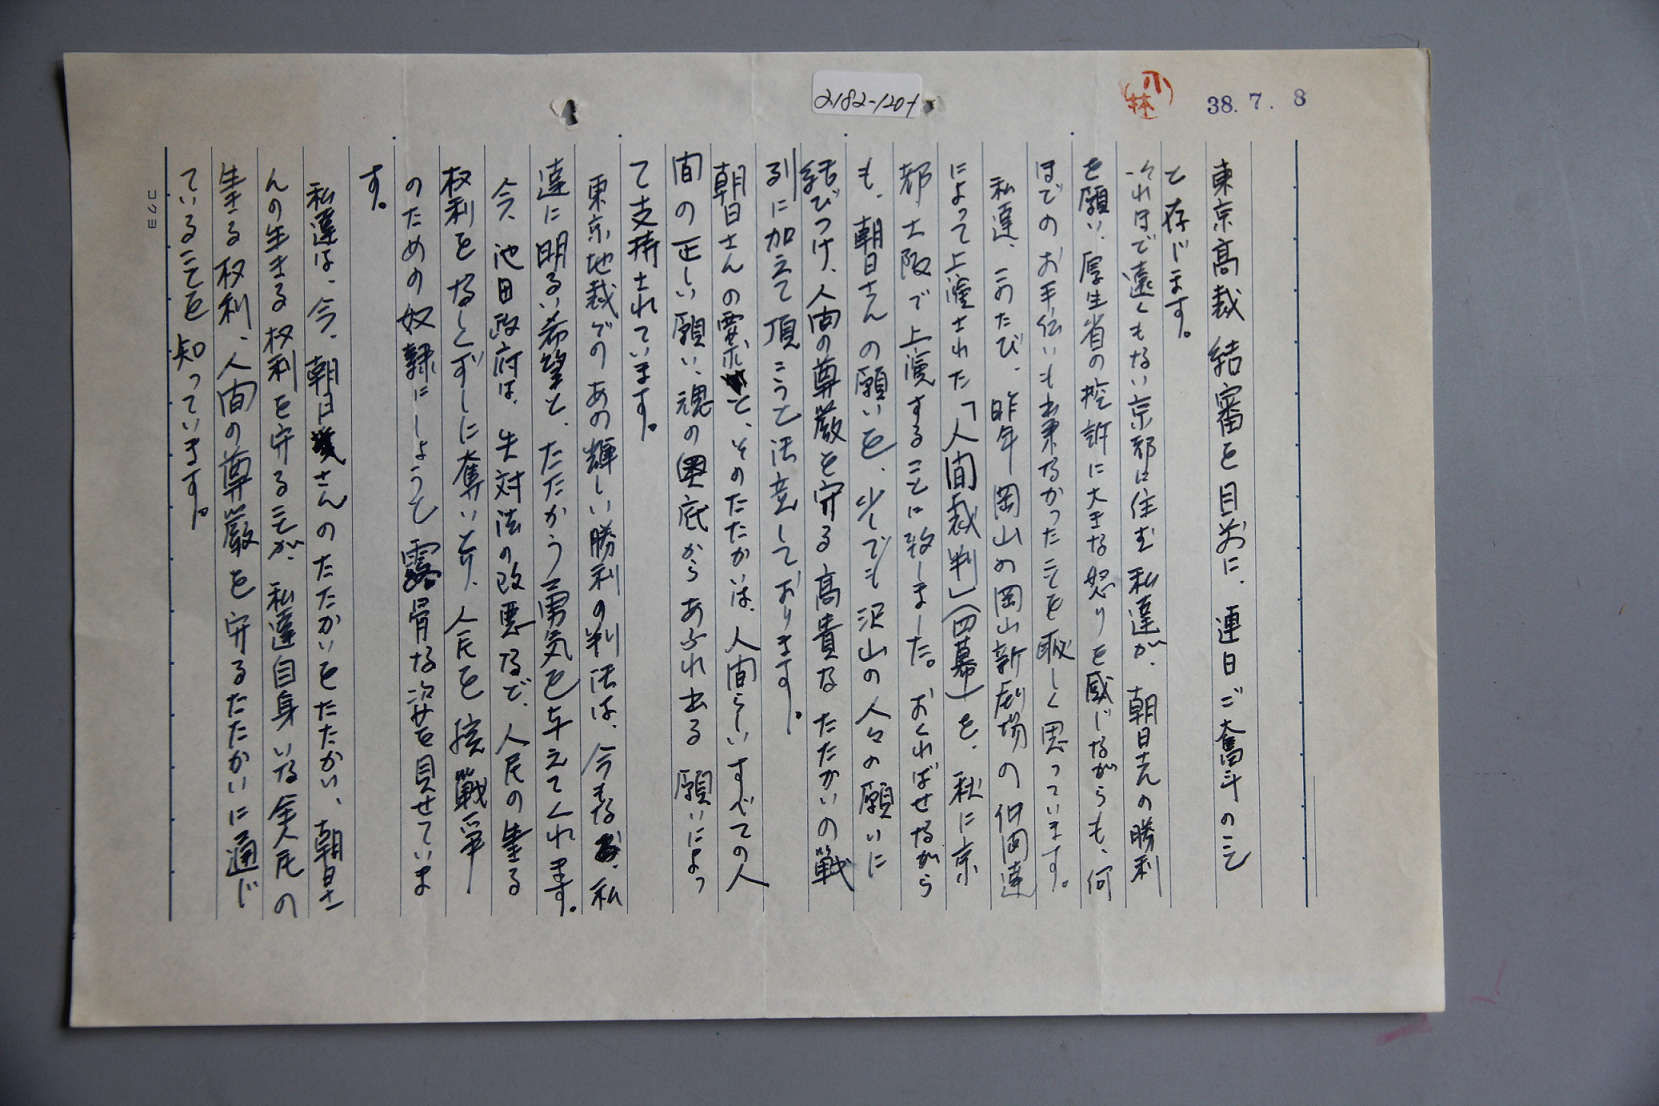 38.7.8
小林
2182-1201
東京高裁結審を目前に、連日ご奮斗のこと
と存じます。
それほど遠くもない京都に住む私達が、朝日さんの勝利
を願い、厚生省の控訴に大きな怒りを感じながらも、何
ほどのお手伝いも出来なかったことを恥しく思っています。
私達、このたび、昨年岡山の岡山新劇場の仲間達
によって上演された「人間裁判」(四幕)を、秋に京
都大阪で上演することに致しました。おくればせながら
も、朝日さんの願いを、少しでも沢山の人々の願いに
結びつけ、人間の尊厳を守る高貴なたたかいの戦
列に加えて頂こうと決意しております。
朝日さんの要求と、そのたたかいは、人間らしいすべての人
間の正しい願い、魂の奥底からあふれ出る願いによっ
て支持されています。
東京地裁でのあの輝しい勝利の判決は、今もなお、私
達に明るい希望と、たたかう勇気を与えてくれます。
今、池田政府は、失対法の改悪などで、人民の生きる
権利をなしくずしに奪いとり、人民を核戦争
のための奴隷にしようと露骨な姿を見せていま
す。
私達は、今、朝日さんのたたかいをたたかい、朝日さ
んの生きる権利を守ることが、私達自身いな全人民の
生きる権利、人間の尊厳を守るたたかいに通じ
ていることを知っています。
コクヨ